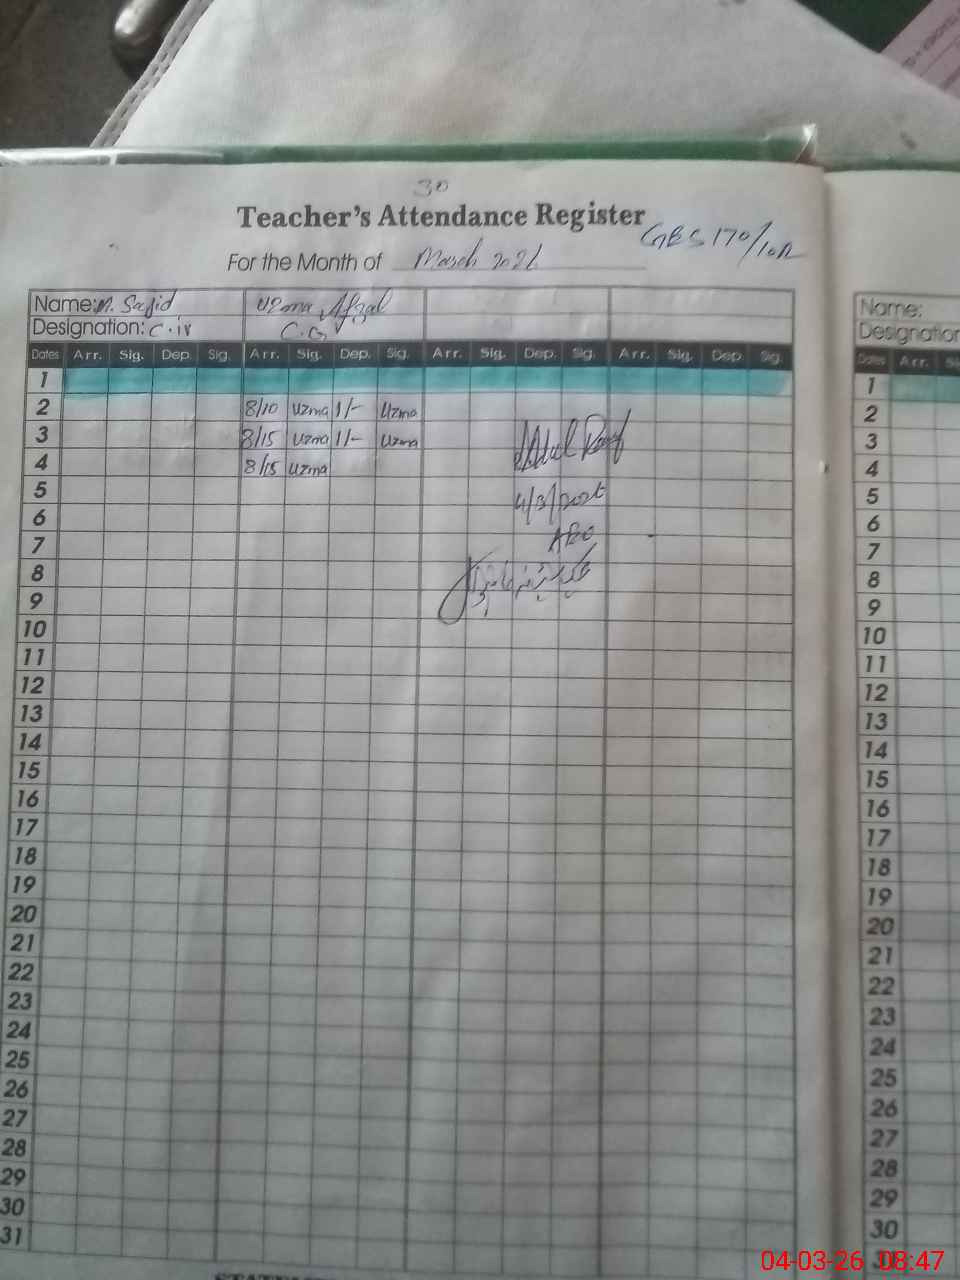 30
Teacher's Attendance Register
GES 170/10R
For the Month of March 2026
Name: M. Sajid Uzma Afzal
Designation: C.iv C.G
Dates Arr. Sig. Dep. Sig. Arr. Sig. Dep. Sig. Arr. Sig. Dep. Sig. Arr. Sig. Dep. Sig.
1
2 8/10 Uzma 1/- Uzma
3 8/15 Uzma 1/- Uzma
4 8/15 Uzma
5
6
7 AEO
8
9
10
11
12
13
14
15
16
17
18
19
20
21
22
23
24
25
26
27
28
29
30
31
Name:
Designation
Dates Arr.
1
2
3
4
5
6
7
8
9
10
11
12
13
14
15
16
17
18
19
20
21
22
23
24
25
26
27
28
29
30
04-03-26 08:47